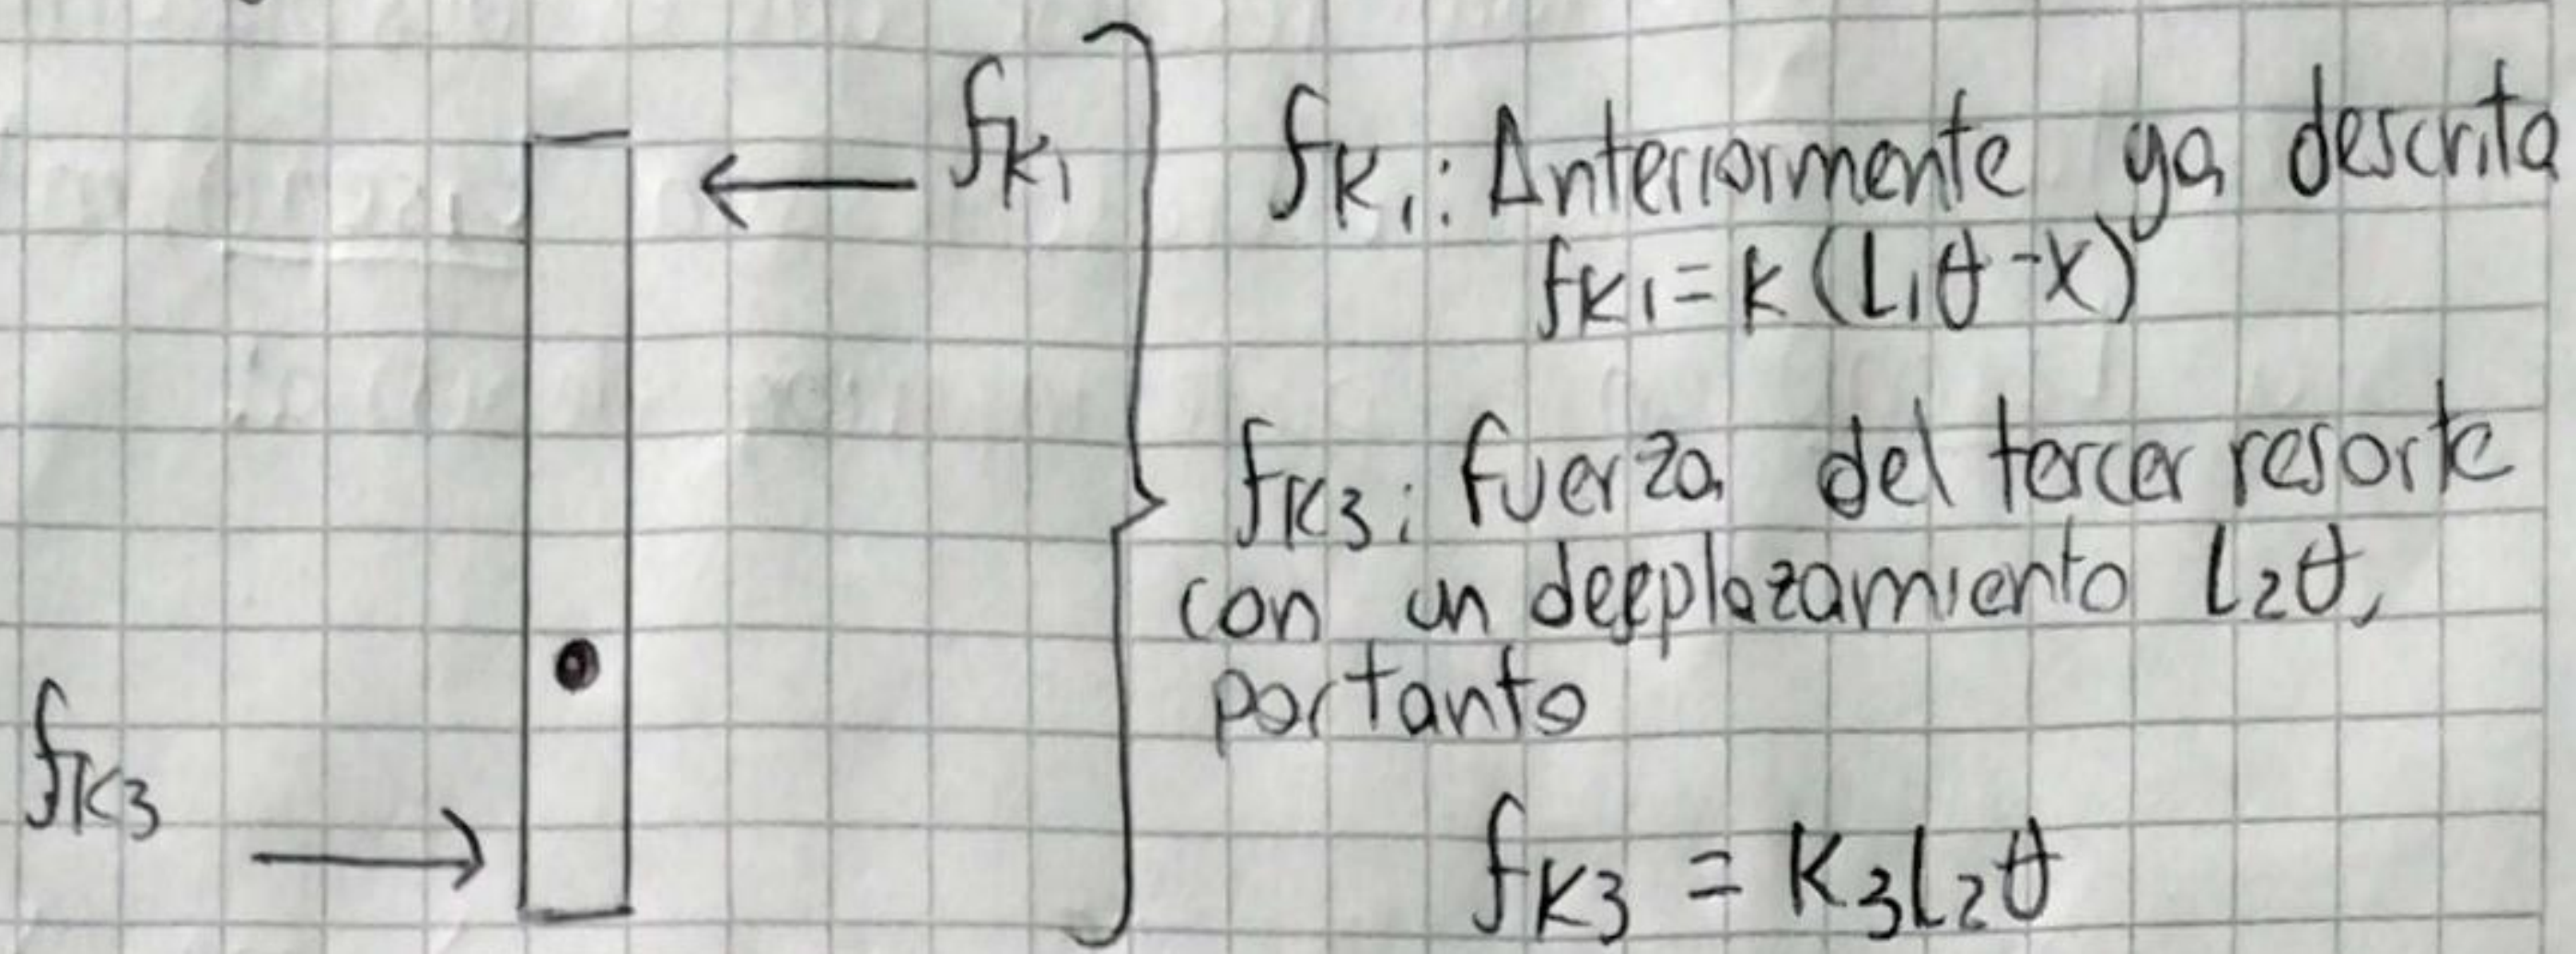 fk1
fk1: Anteriormente ya descrita
fk1 = k (L1θ - x)
fk3: fuerza del tercer resorte
con un desplazamiento L2θ,
portanto
fk3
fk3 = k3L2θ